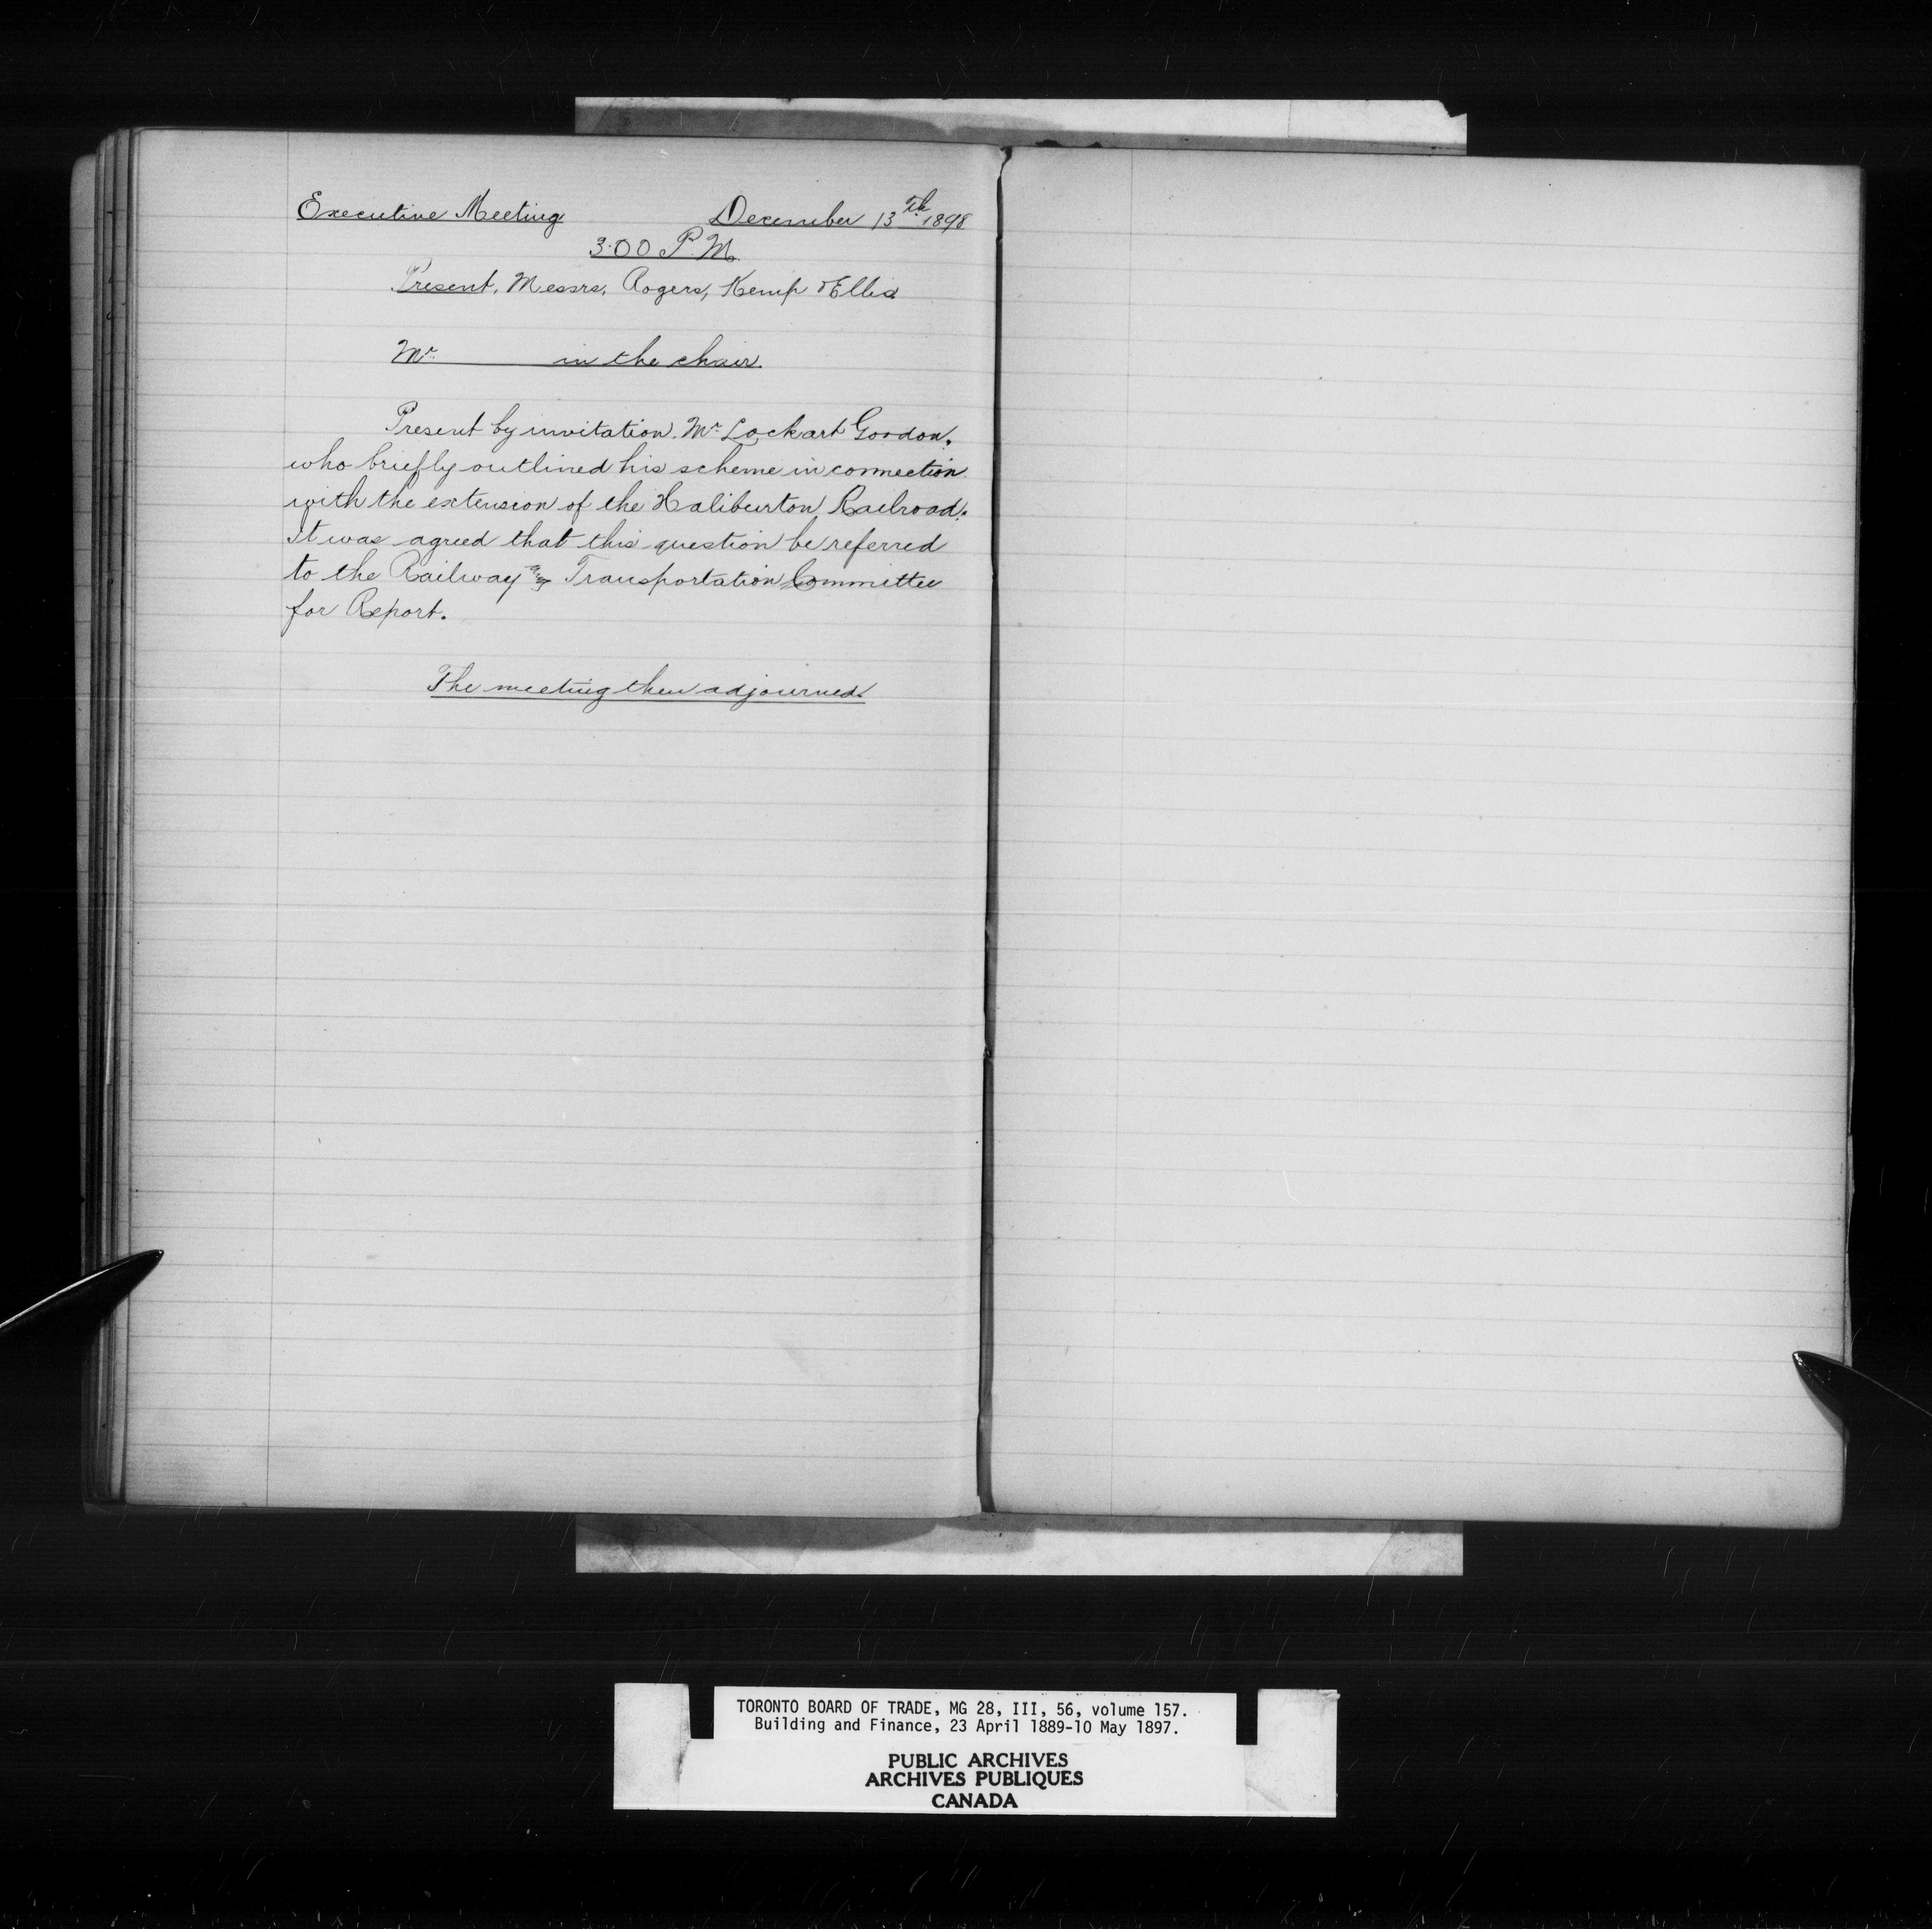 Executive Meeting December 13th 1898
3.00 P.M.
Present, Messrs, Rogers, Kemp & Ellis
Mr. in the chair.
Present by invitation. Mr Lockart Gordon,
who briefly outlined his scheme in connection
with the extension of the Haliburton Railroad.
It was agreed that this question be referred
to the Railway and Transportation Committee
for Report.
The meeting then adjourned.
TORONTO BOARD OF TRADE, MG 28, III, 56, volume 157.
Building and Finance, 23 April 1889-10 May 1897.
PUBLIC ARCHIVES
ARCHIVES PUBLIQUES
CANADA